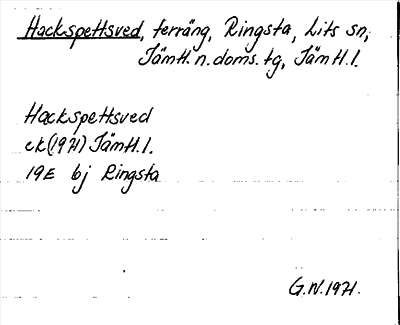 Hackspettsved, terräng, Ringsta, Lits sn,
Jämtl. n. doms. tg, Jämtl. l.
Hackspettsved
ek (1971) Jämtl. l.
19E bj Ringsta
G.N. 1971.